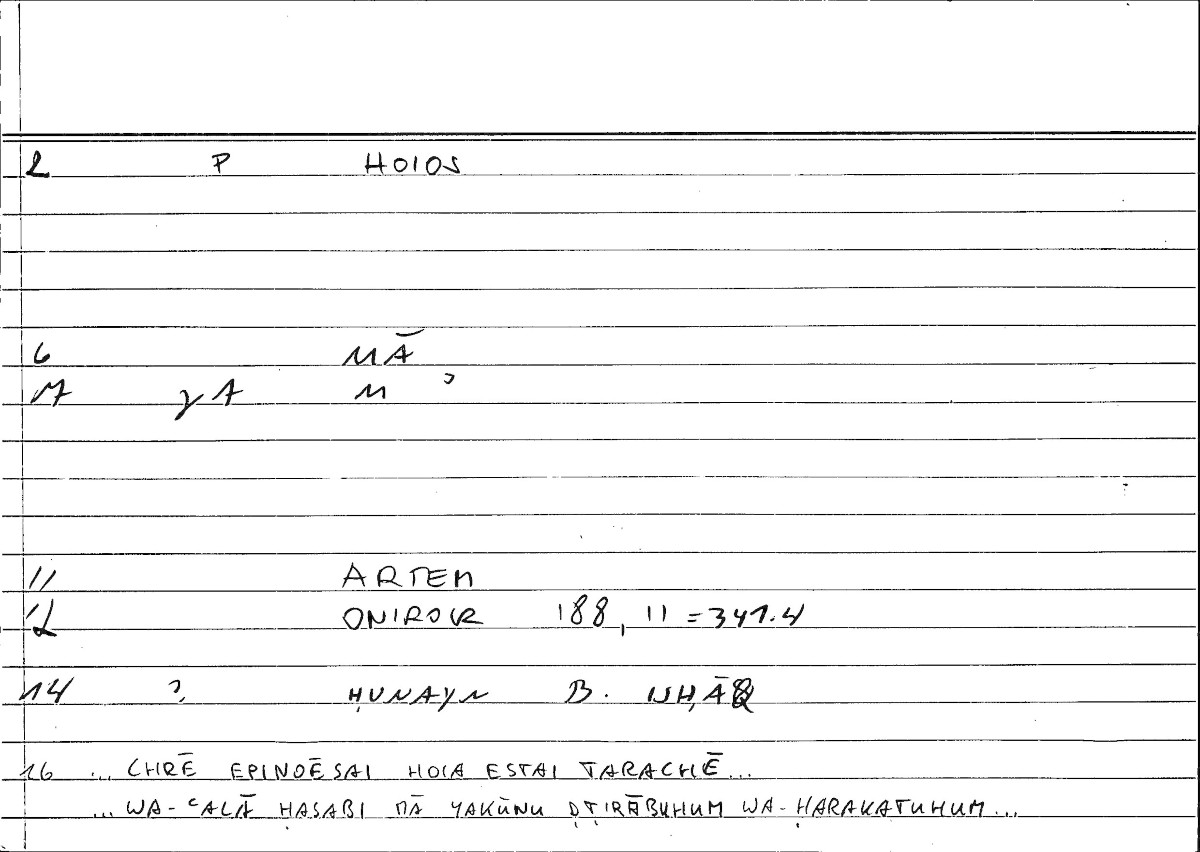 2 P HOIOS
6 MĀ
M ʾ
11 ARTEM
12 ONIROCR 188, 11 = 341.4
14 ḤUNAYN B. ISḤĀQ
16 ... CHRĒ EPINOĒSAI HOIA ESTAI TARACHĒ...
... WA-ʿALĀ ḤASABI MĀ YAKŪNU ḌṬIRĀBUHUM WA-ḤARAKATUHUM...